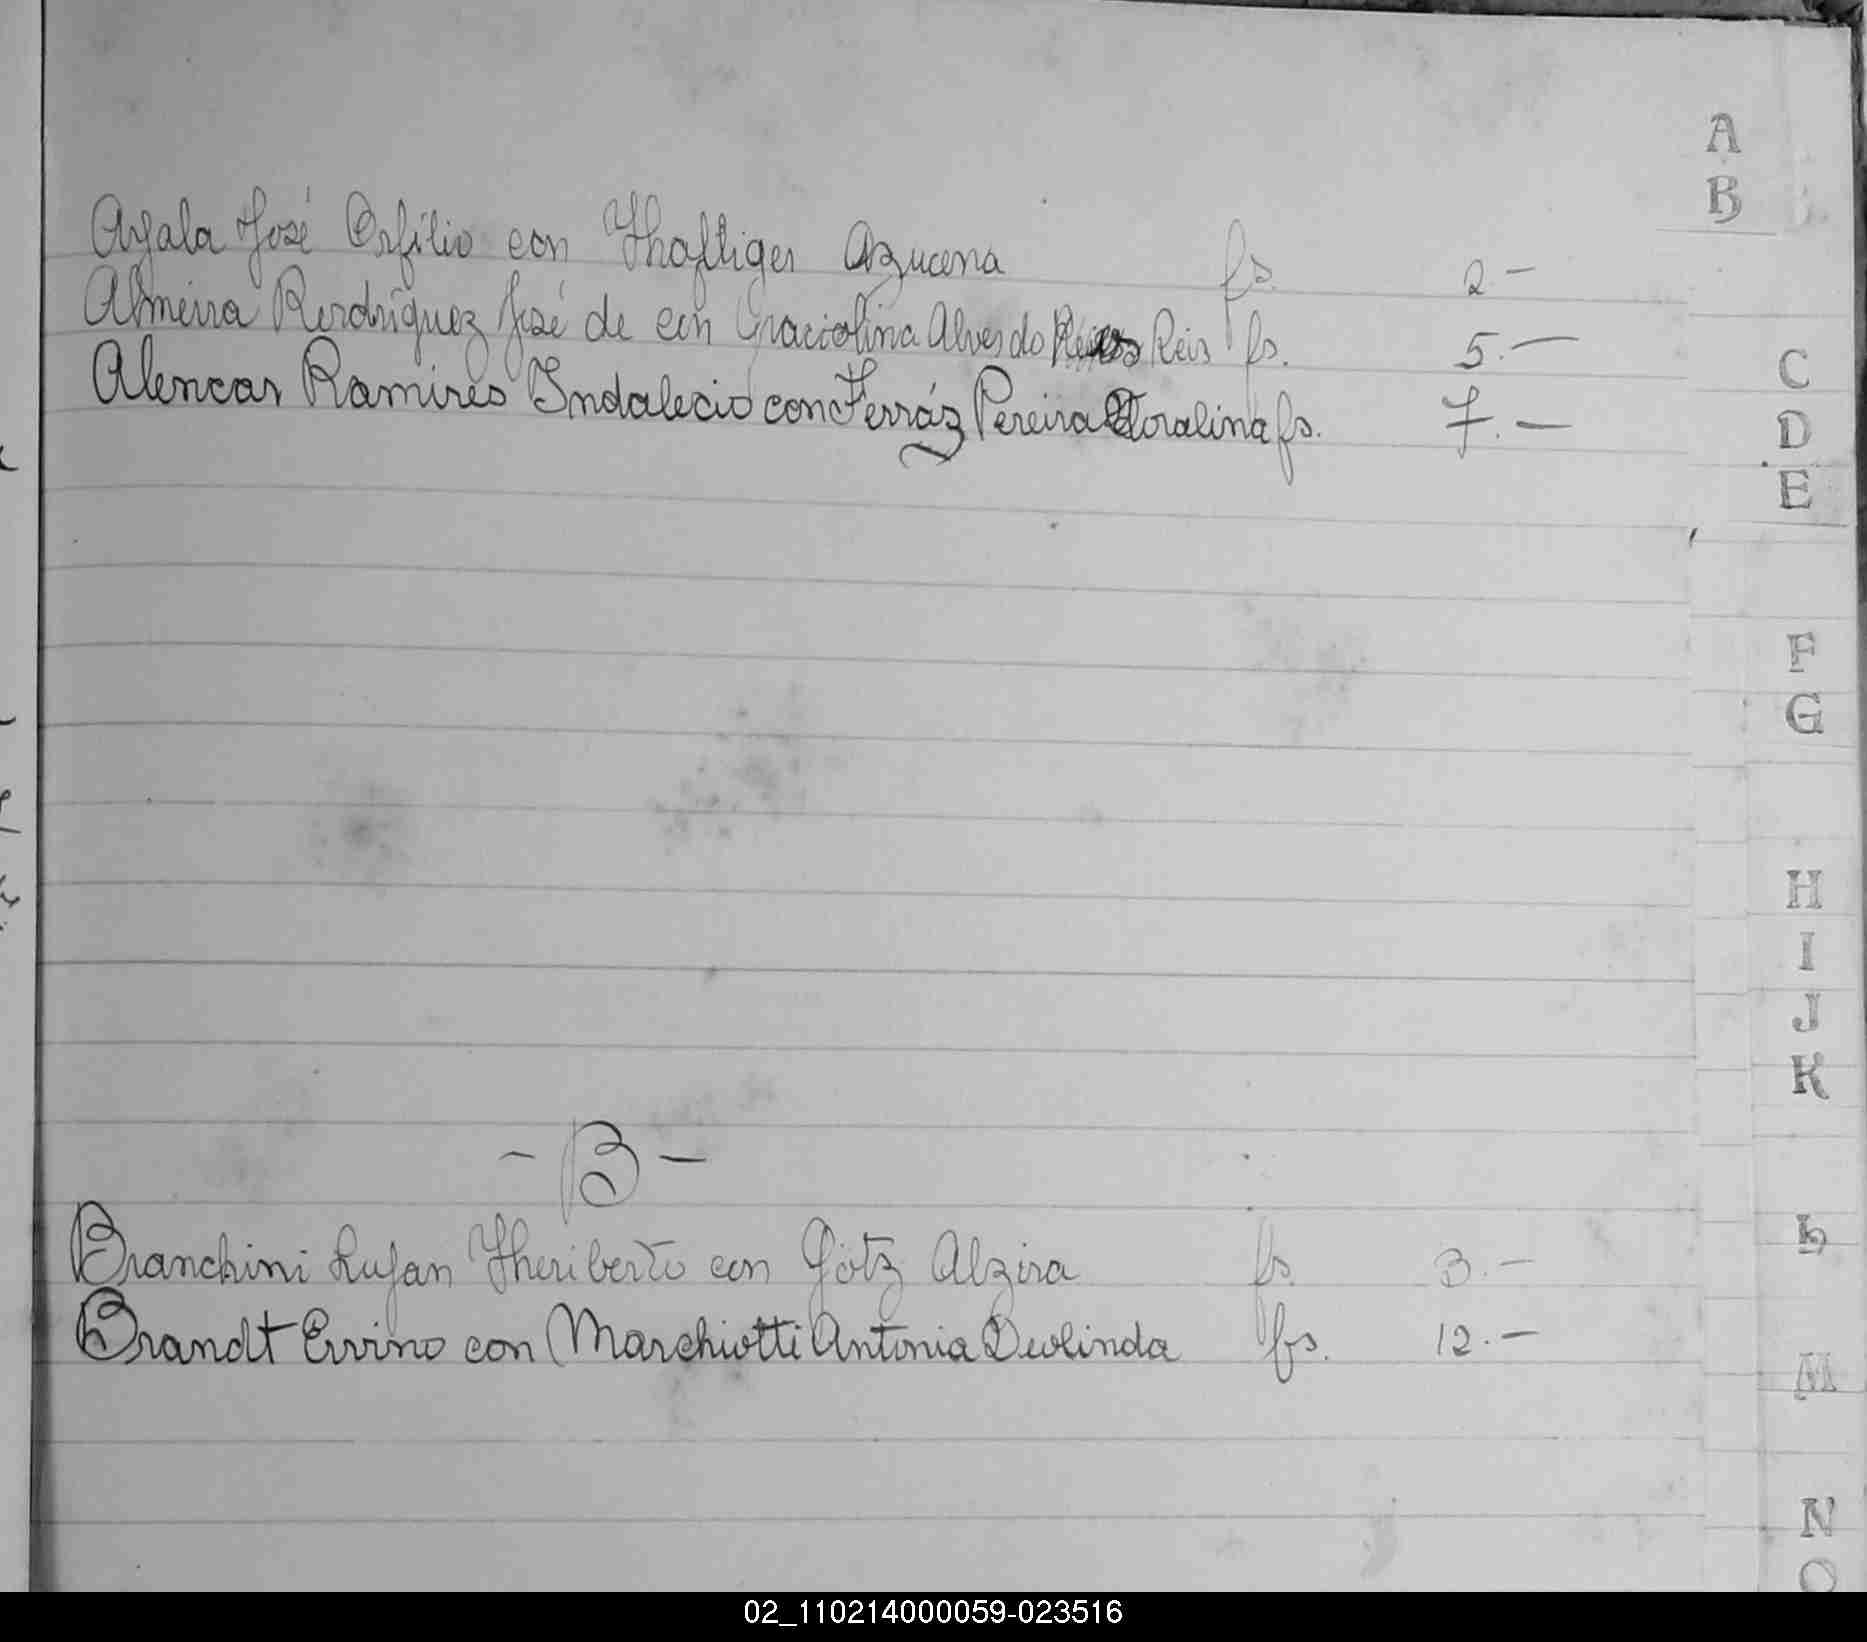 A
B
Ayala José Orfilio con Haftiger Azucena fs. 2-
Almeira Rordriguez José de con Graciolina Alves do Reis fs. 5.-
Alencar Ramires Indalecio con Ferráz Pereira Doralina fs. 7.-
C
D
E
F
G
H
I
J
K
- B -
Branchini Lujan Heriberto con Götz Alzira fs. 3.-
Brandt Ervino con Marchiotti Antonia Deolinda fs. 12.-
L
M
N
O
02_110214000059-023516